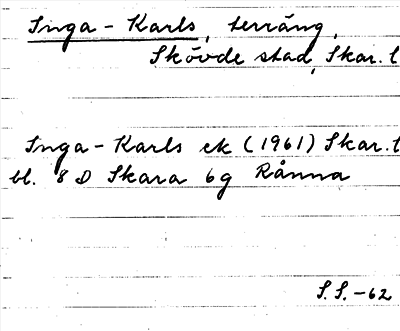 Inga-Karls, terräng,
Skövde stad, Skar. l
Inga-Karls ek (1961) Skar. l
bl. 8 D Skara 6g Rånna
S.S.-62